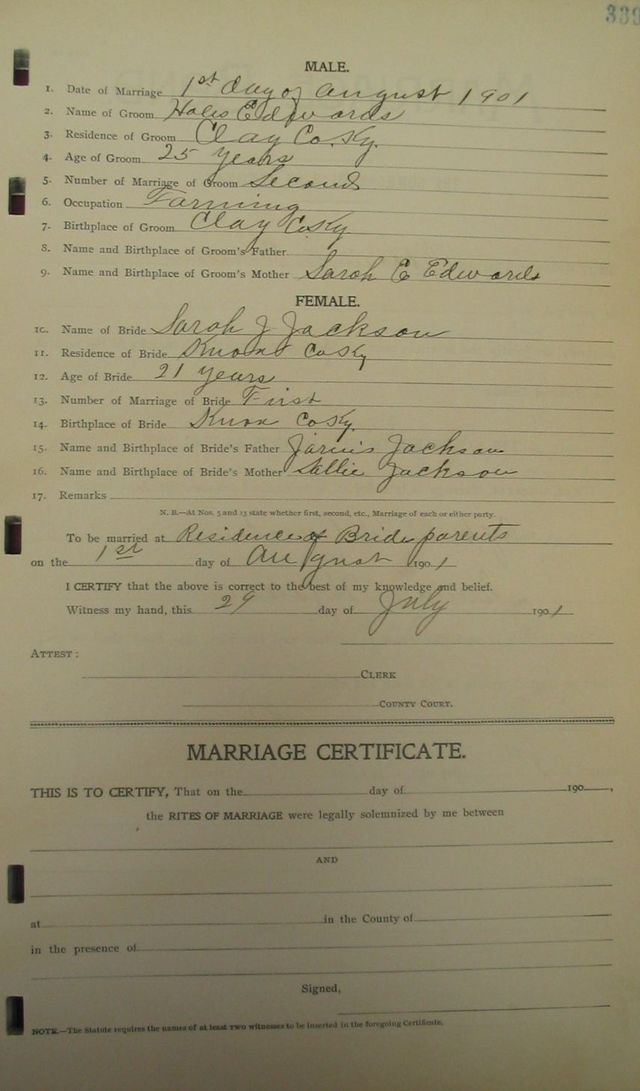 339
MALE.
1. Date of Marriage 1st day of august 1901
2. Name of Groom Edwards
3. Residence of Groom Clay Co. Ky.
4. Age of Groom 25 years
5. Number of Marriage of Groom Second
6. Occupation Farming
7. Birthplace of Groom Clay Co Ky
8. Name and Birthplace of Groom's Father
9. Name and Birthplace of Groom's Mother Sarah E Edwards
FEMALE.
10. Name of Bride Sarah J Jackson
11. Residence of Bride Knox Co Ky
12. Age of Bride 21 years
13. Number of Marriage of Bride First
14. Birthplace of Bride Knox Co Ky.
15. Name and Birthplace of Bride's Father Jarvis Jackson
16. Name and Birthplace of Bride's Mother Sallie Jackson
17. Remarks
N. B.—At Nos. 5 and 13 state whether first, second, etc., Marriage of each or either party.
To be married at Residence of Bride parents
on the 1st day of August 1901
I CERTIFY that the above is correct to the best of my knowledge and belief.
Witness my hand, this 29 day of July 1901
ATTEST:
CLERK
COUNTY COURT.
MARRIAGE CERTIFICATE.
THIS IS TO CERTIFY, That on the day of 190 ,
the RITES OF MARRIAGE were legally solemnized by me between
AND
at in the County of
in the presence of
Signed,
NOTE.—The Statute requires the names of at least two witnesses to be inserted in the foregoing Certificate.